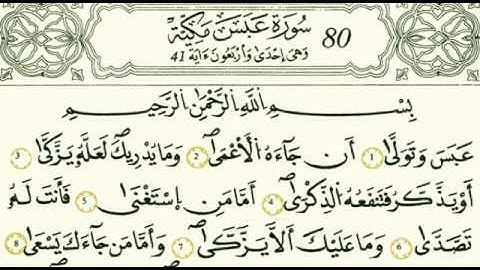 سُورَةُ عَبَسَ مَكِّيَّة 80
وَهِيَ إِحْدَى وَأَرْبَعُونَ ءَايَة 41
بِسْمِ اللَّهِ الرَّحْمَٰنِ الرَّحِيمِ
عَبَسَ وَتَوَلَّىٰ 1 أَن جَآءَهُ الْأَعْمَىٰ 2 وَمَا يُدْرِيكَ لَعَلَّهُ يَزَّكَّىٰ 3
أَوْ يَذَّكَّرُ فَتَنفَعُهُ الذِّكْرَىٰ 4 أَمَّا مَنِ إِسْتَغْنَىٰ 5 فَأَنتَ لَهُ
تَصَّدَّىٰ 6 وَمَا عَلَيْكَ أَلَّا يَزَّكَّىٰ 7 وَأَمَّا مَن جَآءَكَ يَسْعَىٰ 8